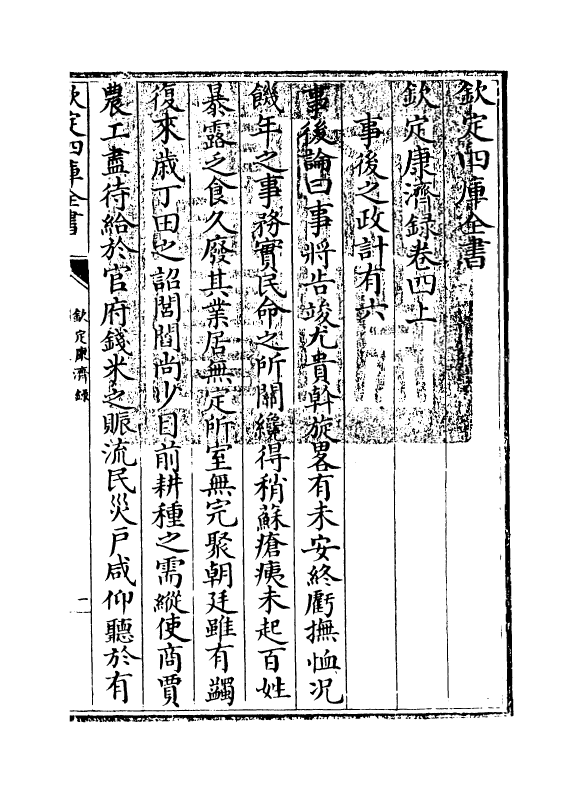 欽定四庫全書
欽定康濟録卷四上
事後之政計有六
事後論曰事將告竣尤貴斡旋畧有未安終虧撫恤况
饑年之事務實民命之所關纔得稍蘇瘡痍未起百姓
暴露乏食久廢其業居無定所室無完聚朝廷雖有蠲
復來歲丁田之詔閭閻尚少目前耕種之需縱使商賈
農工盡待給於官府錢米之賑流民災戶咸仰聽於有
欽定四庫全書
欽定康濟録
一